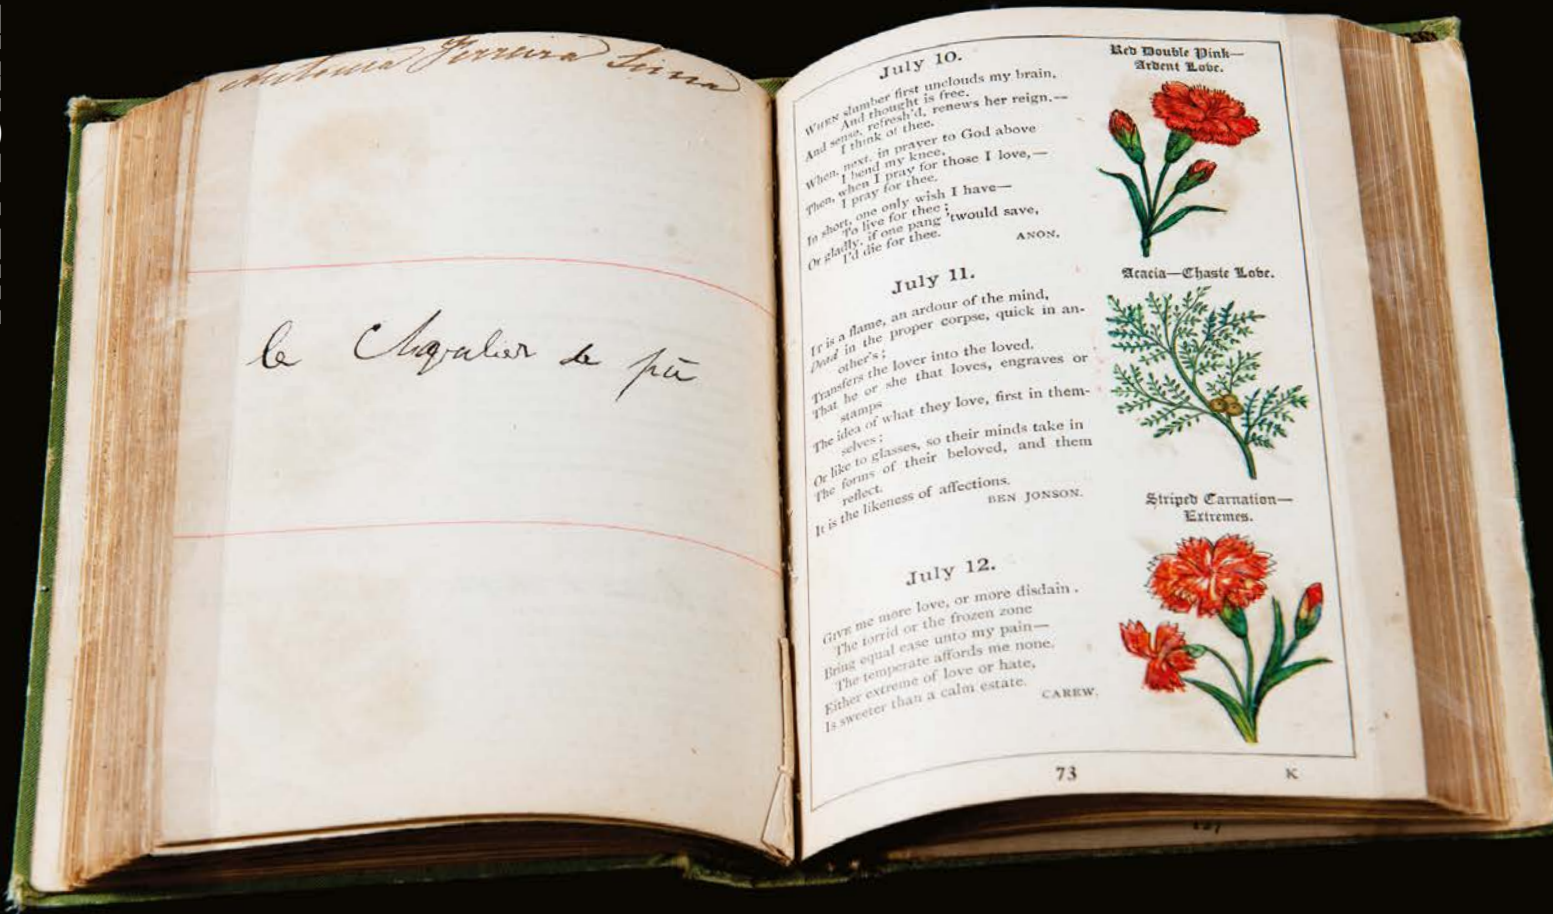 Antonia Ferreira
le de
July 10.
WHEN slumber first unclouds my brain,
And thought is free.
And sense, refresh'd, renews her reign,—
I think of thee.
When, next, in prayer to God above
I bend my knee,
Then, when I pray for those I love,—
I pray for thee.
In short, one only wish I have—
To live for thee;
Or gladly, if one pang 'twould save,
I'd die for thee.
ANON.
July 11.
IT is a flame, an ardour of the mind,
Dead in the proper corpse, quick in an-
other's;
Transfers the lover into the loved.
That he or she that loves, engraves or
stamps
The idea of what they love, first in them-
selves;
Or like to glasses, so their minds take in
The forms of their beloved, and them
reflect.
It is the likeness of affections.
BEN JONSON.
July 12.
GIVE me more love, or more disdain.
The torrid or the frozen zone
Bring equal ease unto my pain—
The temperate affords me none.
Either extreme of love or hate,
Is sweeter than a calm estate.
CAREW.
Red Double Pink—
Ardent Love.
Acacia—Chaste Love.
Striped Carnation—
Extremes.
73
K